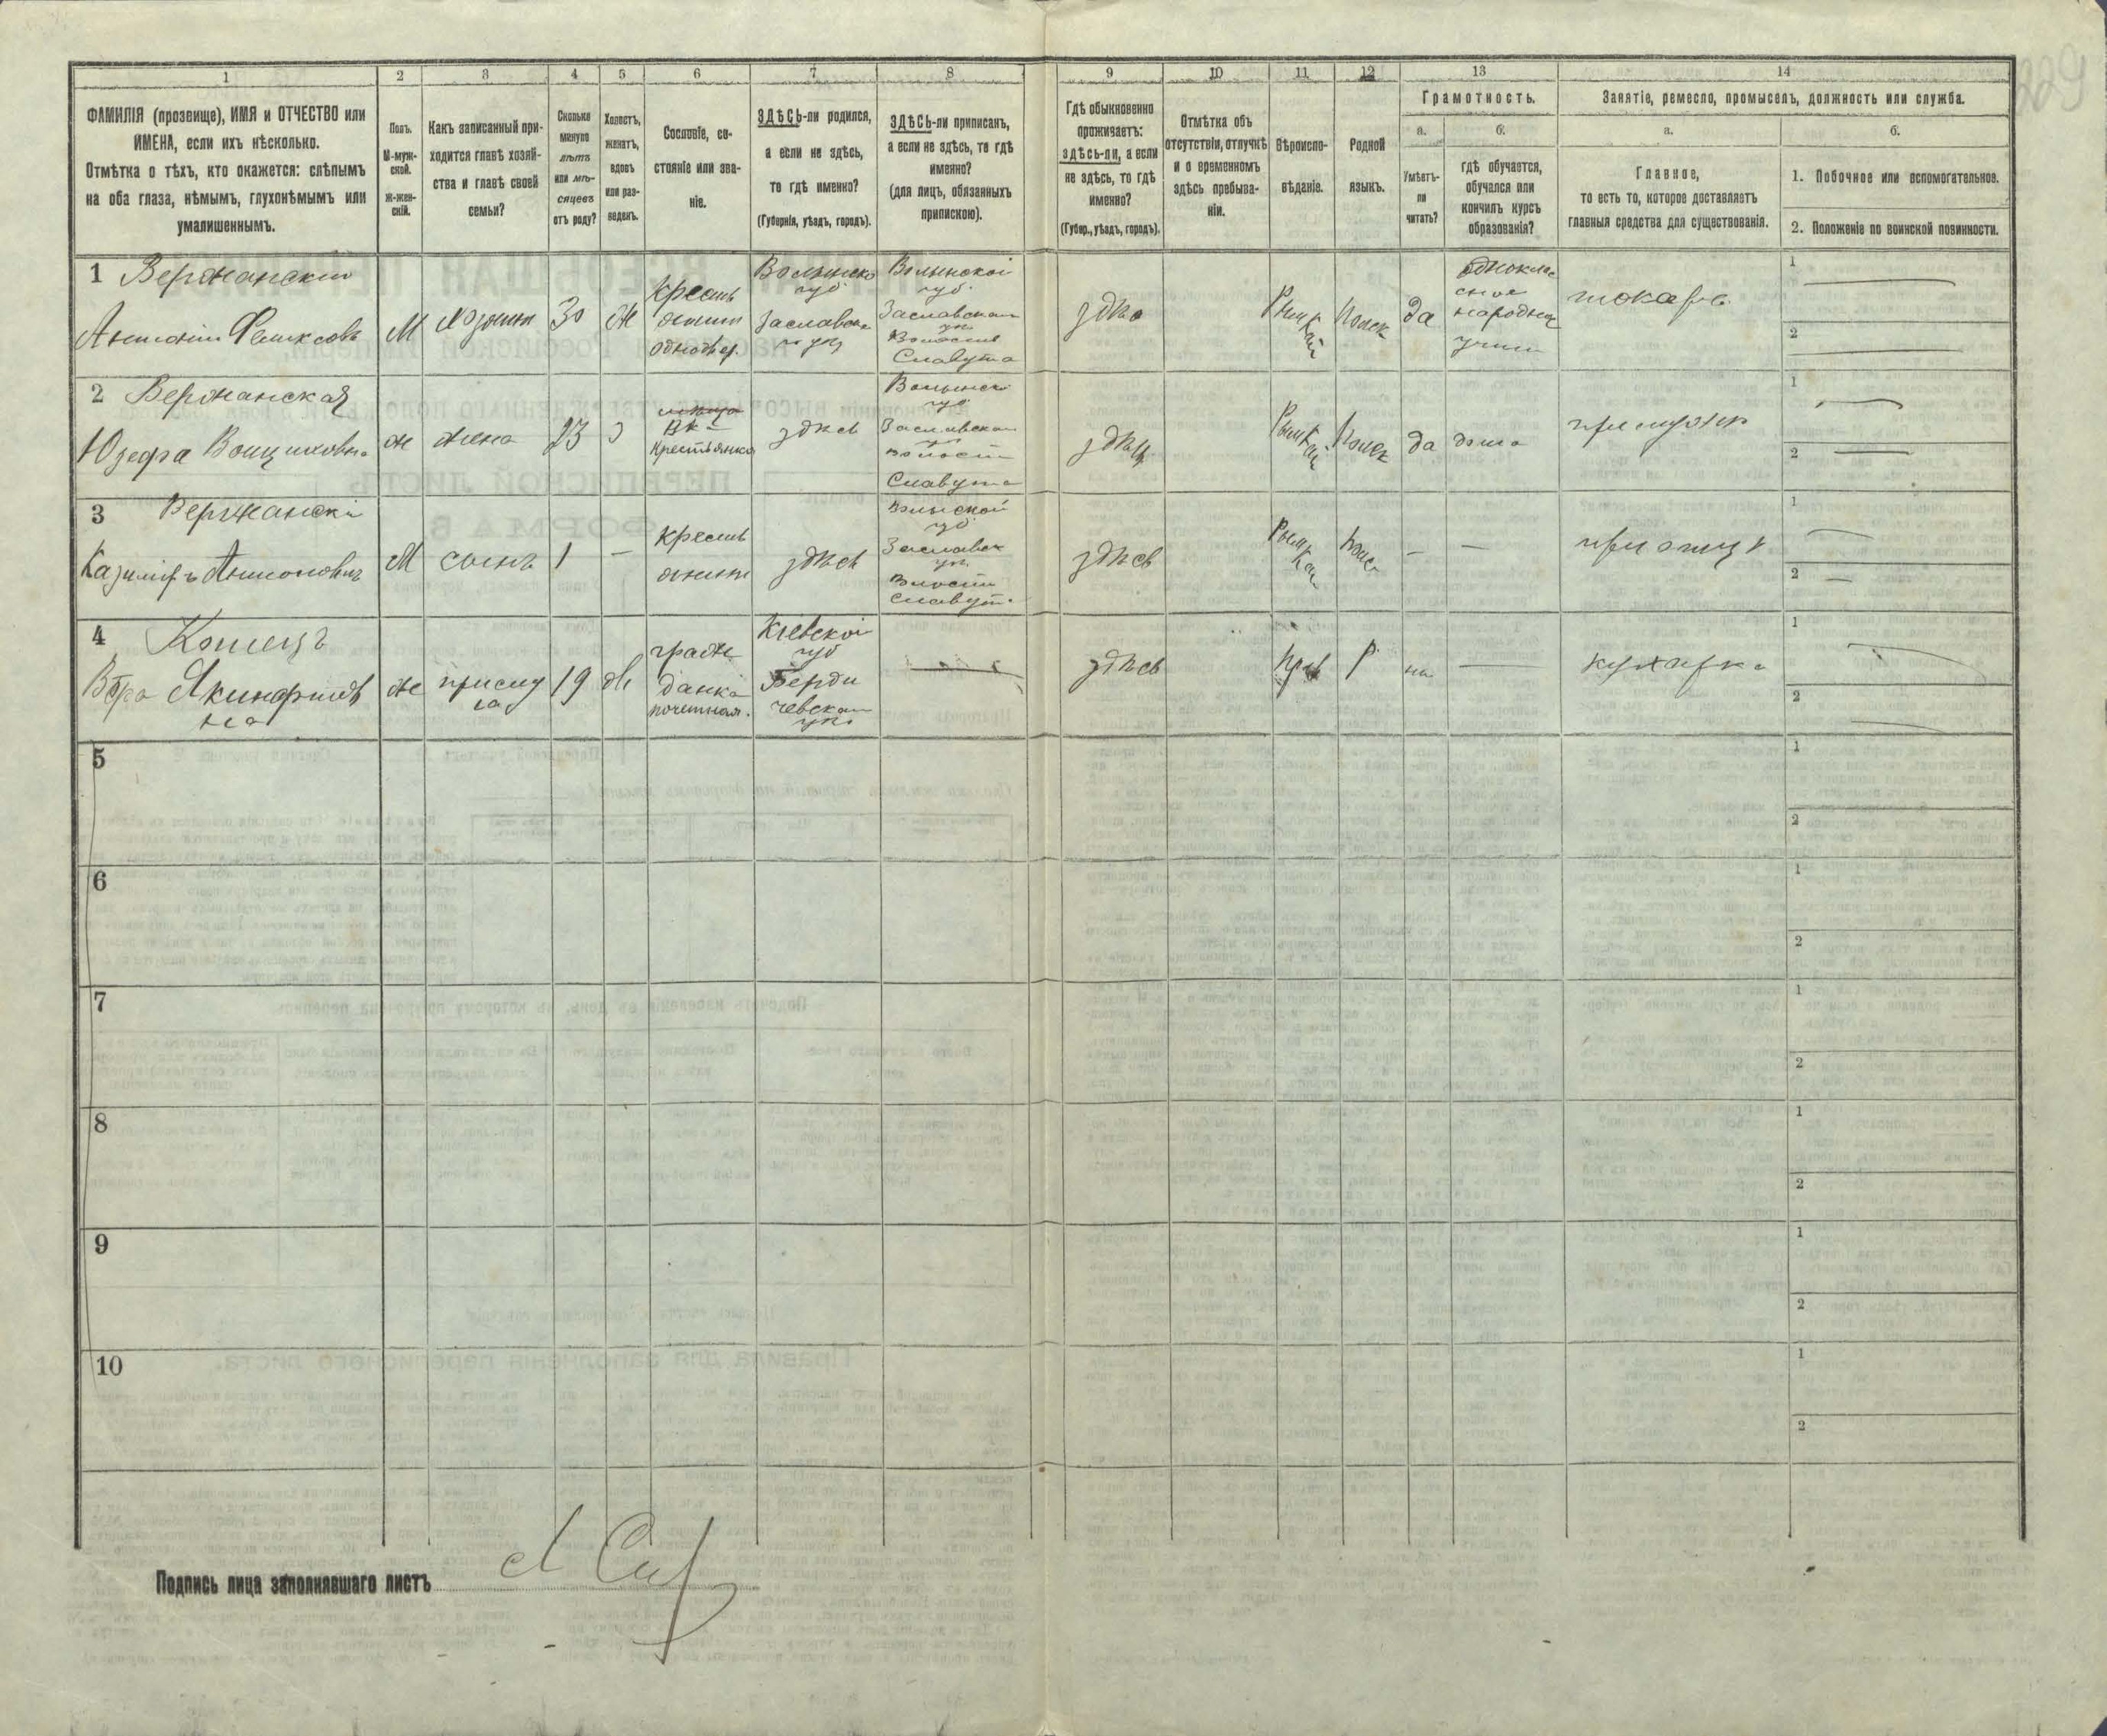 1
2
3
4
5
6
7
8
9
10
11
12
13
14
ФАМИЛІЯ (прозвище), ИМЯ и ОТЧЕСТВО или
ИМЕНА, если ихъ нѣсколько.
Отмѣтка о тѣхъ, кто окажется: слѣпымъ
на оба глаза, нѣмымъ, глухонѣмымъ или
умалишеннымъ.
Полъ.
М-муж-
ской.
Ж-жен-
скій.
Какъ записанный при-
ходится главѣ хозяй-
ства и главѣ своей
семьи?
Сколько
минуло
лѣтъ
или мѣ-
сяцевъ
отъ роду?
Холостъ,
женатъ,
вдовъ
или раз-
веденъ.
Сословіе, со-
стояніе или зва-
ніе.
ЗДѢСЬ-ли родился,
а если не здѣсь,
то гдѣ именно?
(Губернія, уѣздъ, городъ).
ЗДѢСЬ-ли приписанъ,
а если не здѣсь, то гдѣ
именно?
(для лицъ, обязанныхъ
припискою).
Гдѣ обыкновенно
проживаетъ:
здѣсь-ли, а если
не здѣсь, то гдѣ
именно?
(Губер., уѣздъ, городъ).
Отмѣтка объ
отсутствіи, отлучкѣ
и о временномъ
здѣсь пребыва-
ніи.
Вѣроиспо-
вѣданіе.
Родной
языкъ.
Грамотность.
а.
Умѣетъ-
ли
читать?
б.
гдѣ обучается,
обучался или
кончилъ курсъ
образованія?
Занятіе, ремесло, промыселъ, должность или служба.
а.
Главное,
то есть то, которое доставляетъ
главныя средства для существованія.
б.
1. Побочное или вспомогательное.
2. Положеніе по воинской повинности.
1 Вержанскій
Антоній Феликсовъ
М
хозяин
30
Ж
крестья
однодвор.
Волынско
губ.
Заславска
го уѣз
Волынской
губ.
Заславскаго
уѣз
Волости
Славута
Римкат
Польск
да
однокла
сное
народное
учил
токарь
1
2
2 Вержанская
Юзефа
ж
жена
23
З
Крестьянка
здѣсь
Волынской
губ
Заславскаго
волости
Славута
Римкат
Польск
да
дома
при мужѣ
1
2
3 Вержанскі
Казиміръ Антоновичъ
М
сынъ
1
—
крестья
здѣсь
Волынской
губ
Заславск
уѣз.
Волости
Славут.
здѣсь
Римкат
Польс
—
—
при отцѣ
1
2
4
ж
прислу
га
19
граж
данка
почетная.
Кіевской
губ
Берди
чевскаго
уѣз
здѣсь
Прав
Р
—
кухарка
1
2
5
1
2
6
1
2
7
1
2
8
1
2
9
1
2
10
1
2
Подпись лица заполнявшаго листъ